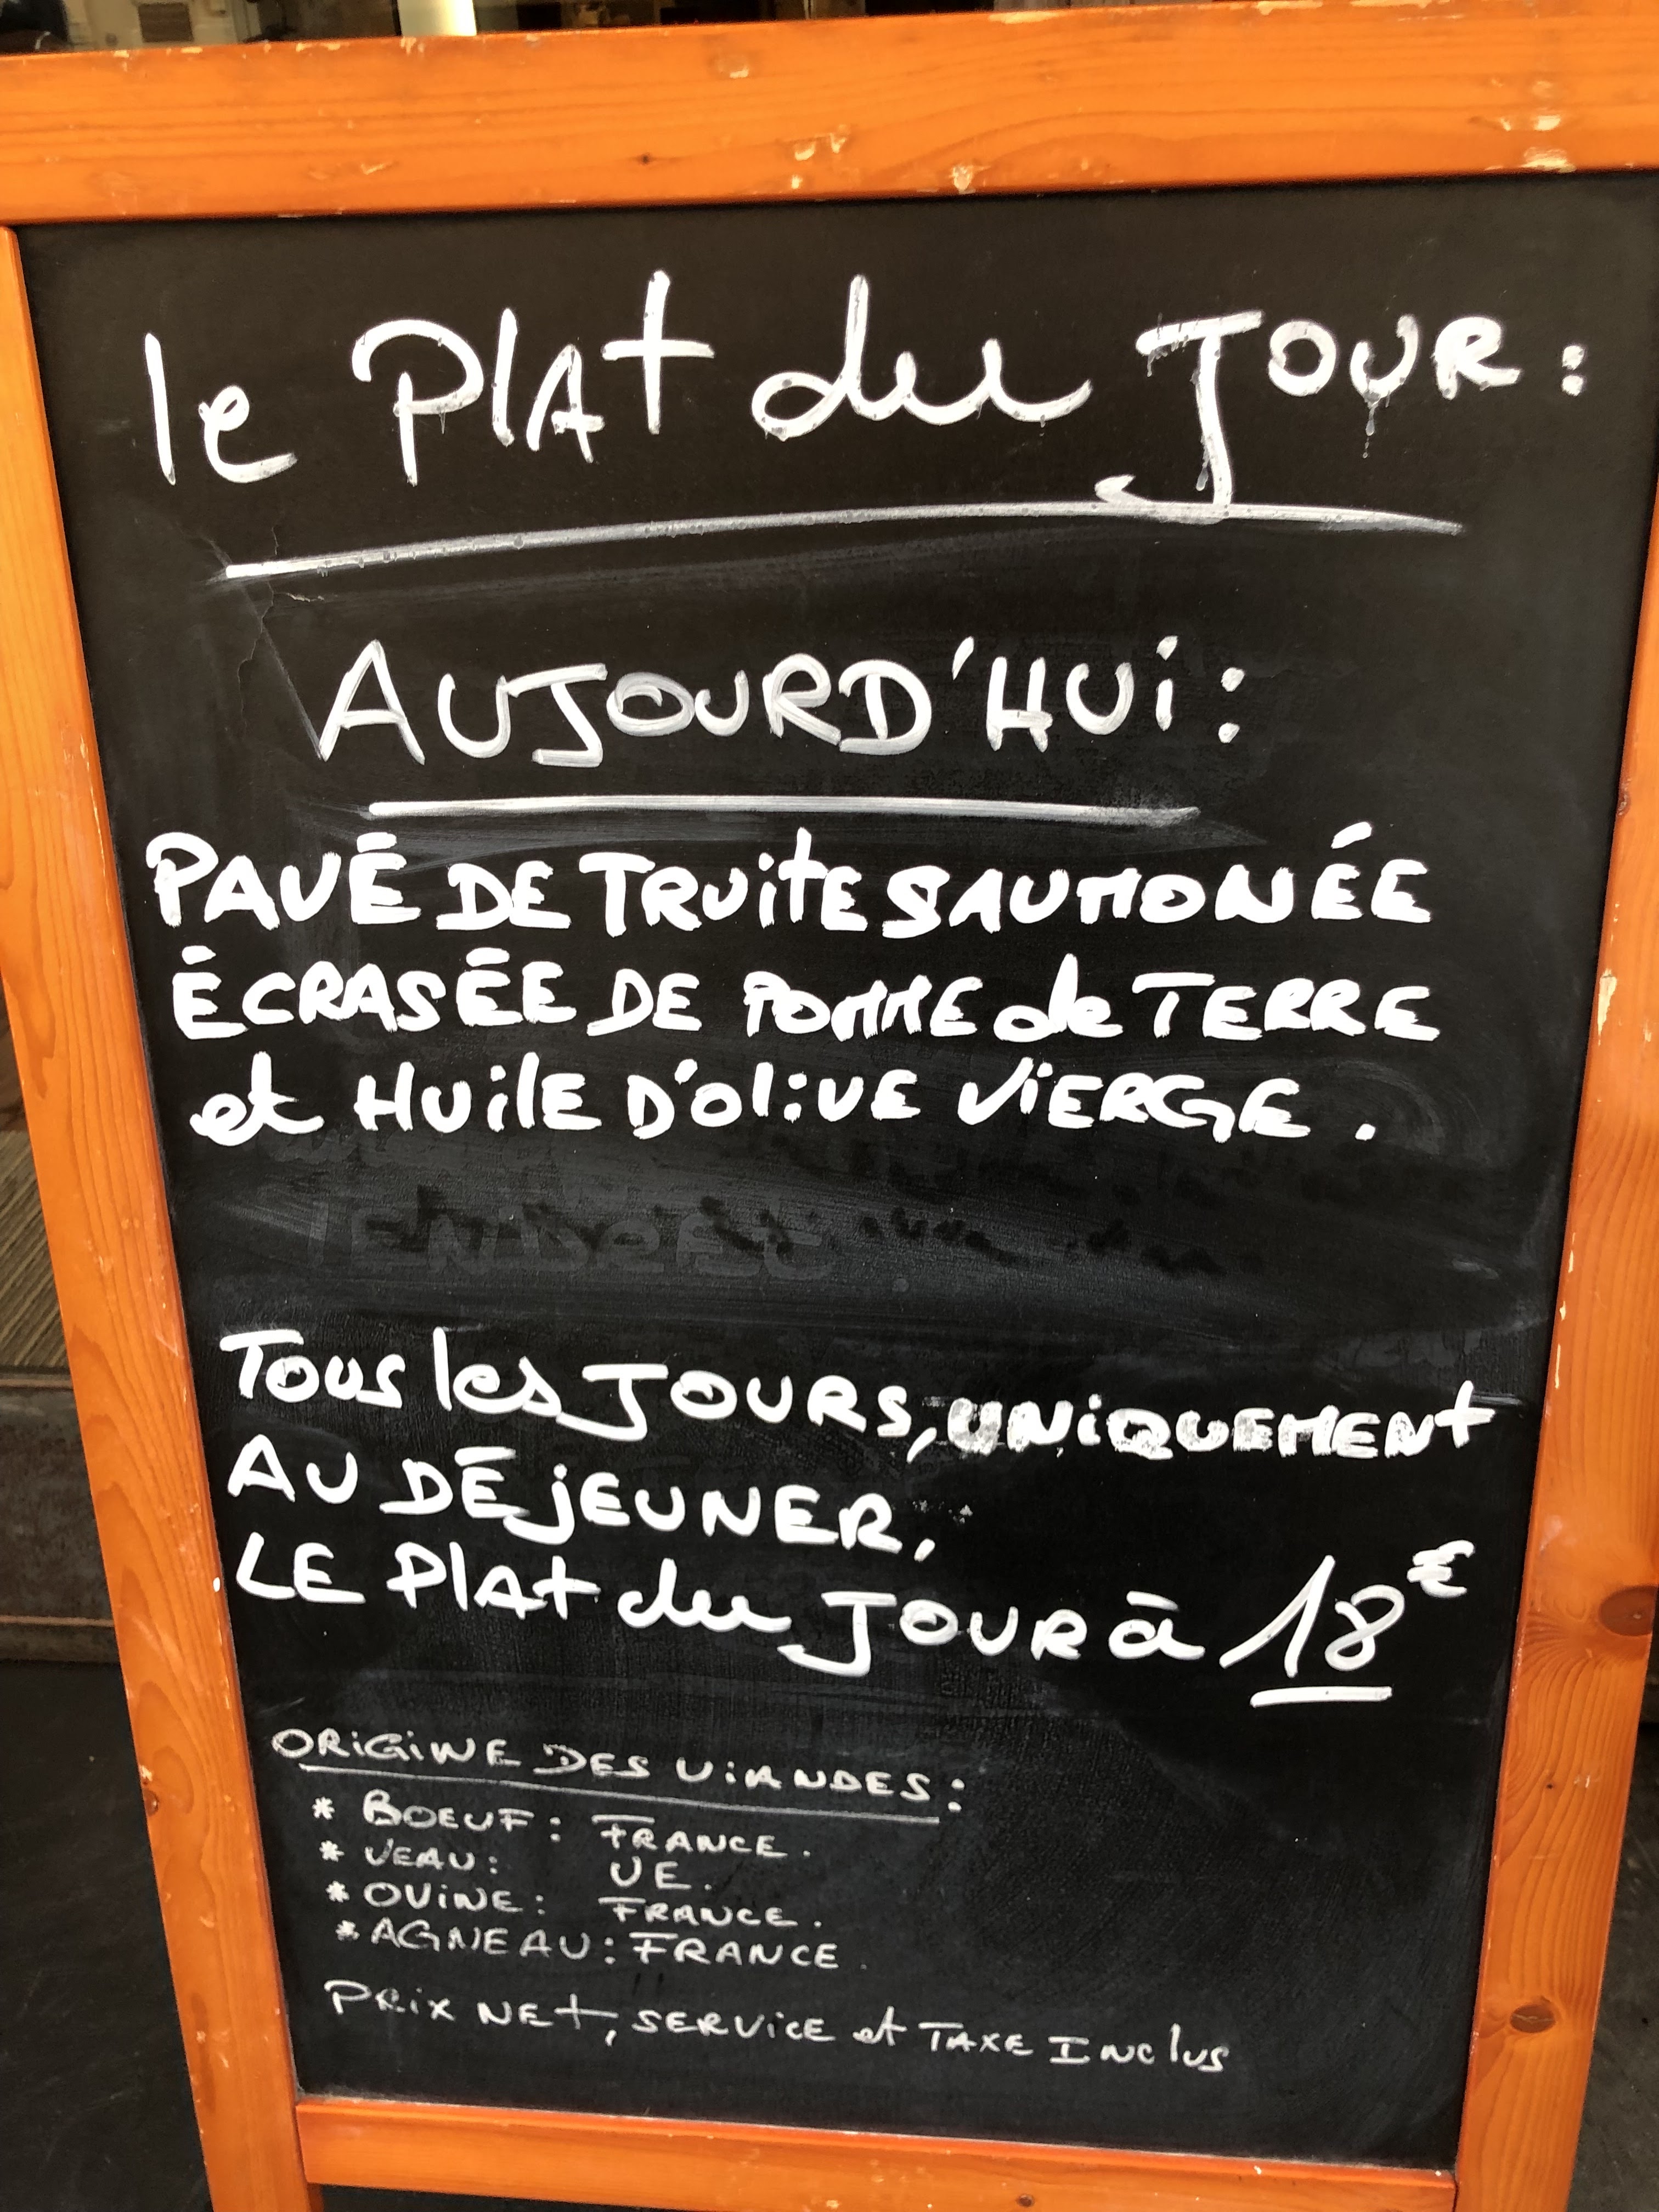 le Plat du Jour :
AUJOURD'HUi :
PAVÉ DE TRUitE SAUMONÉE
ÉCRASÉE DE POMME de TERRE
et HUilE D'oliVE ViERGE .
Tous les JOURS, UNiQUEMENt
AU DÉjEUNER,
LE Plat du JOUR à 18€
ORiGiNE DES ViANDES :
* BOEUF : FRANCE .
* VEAU : UE .
* OViNE : FRANCE .
* AGNEAU : FRANCE .
PRix NEt, SERViCE et TAXE INClus